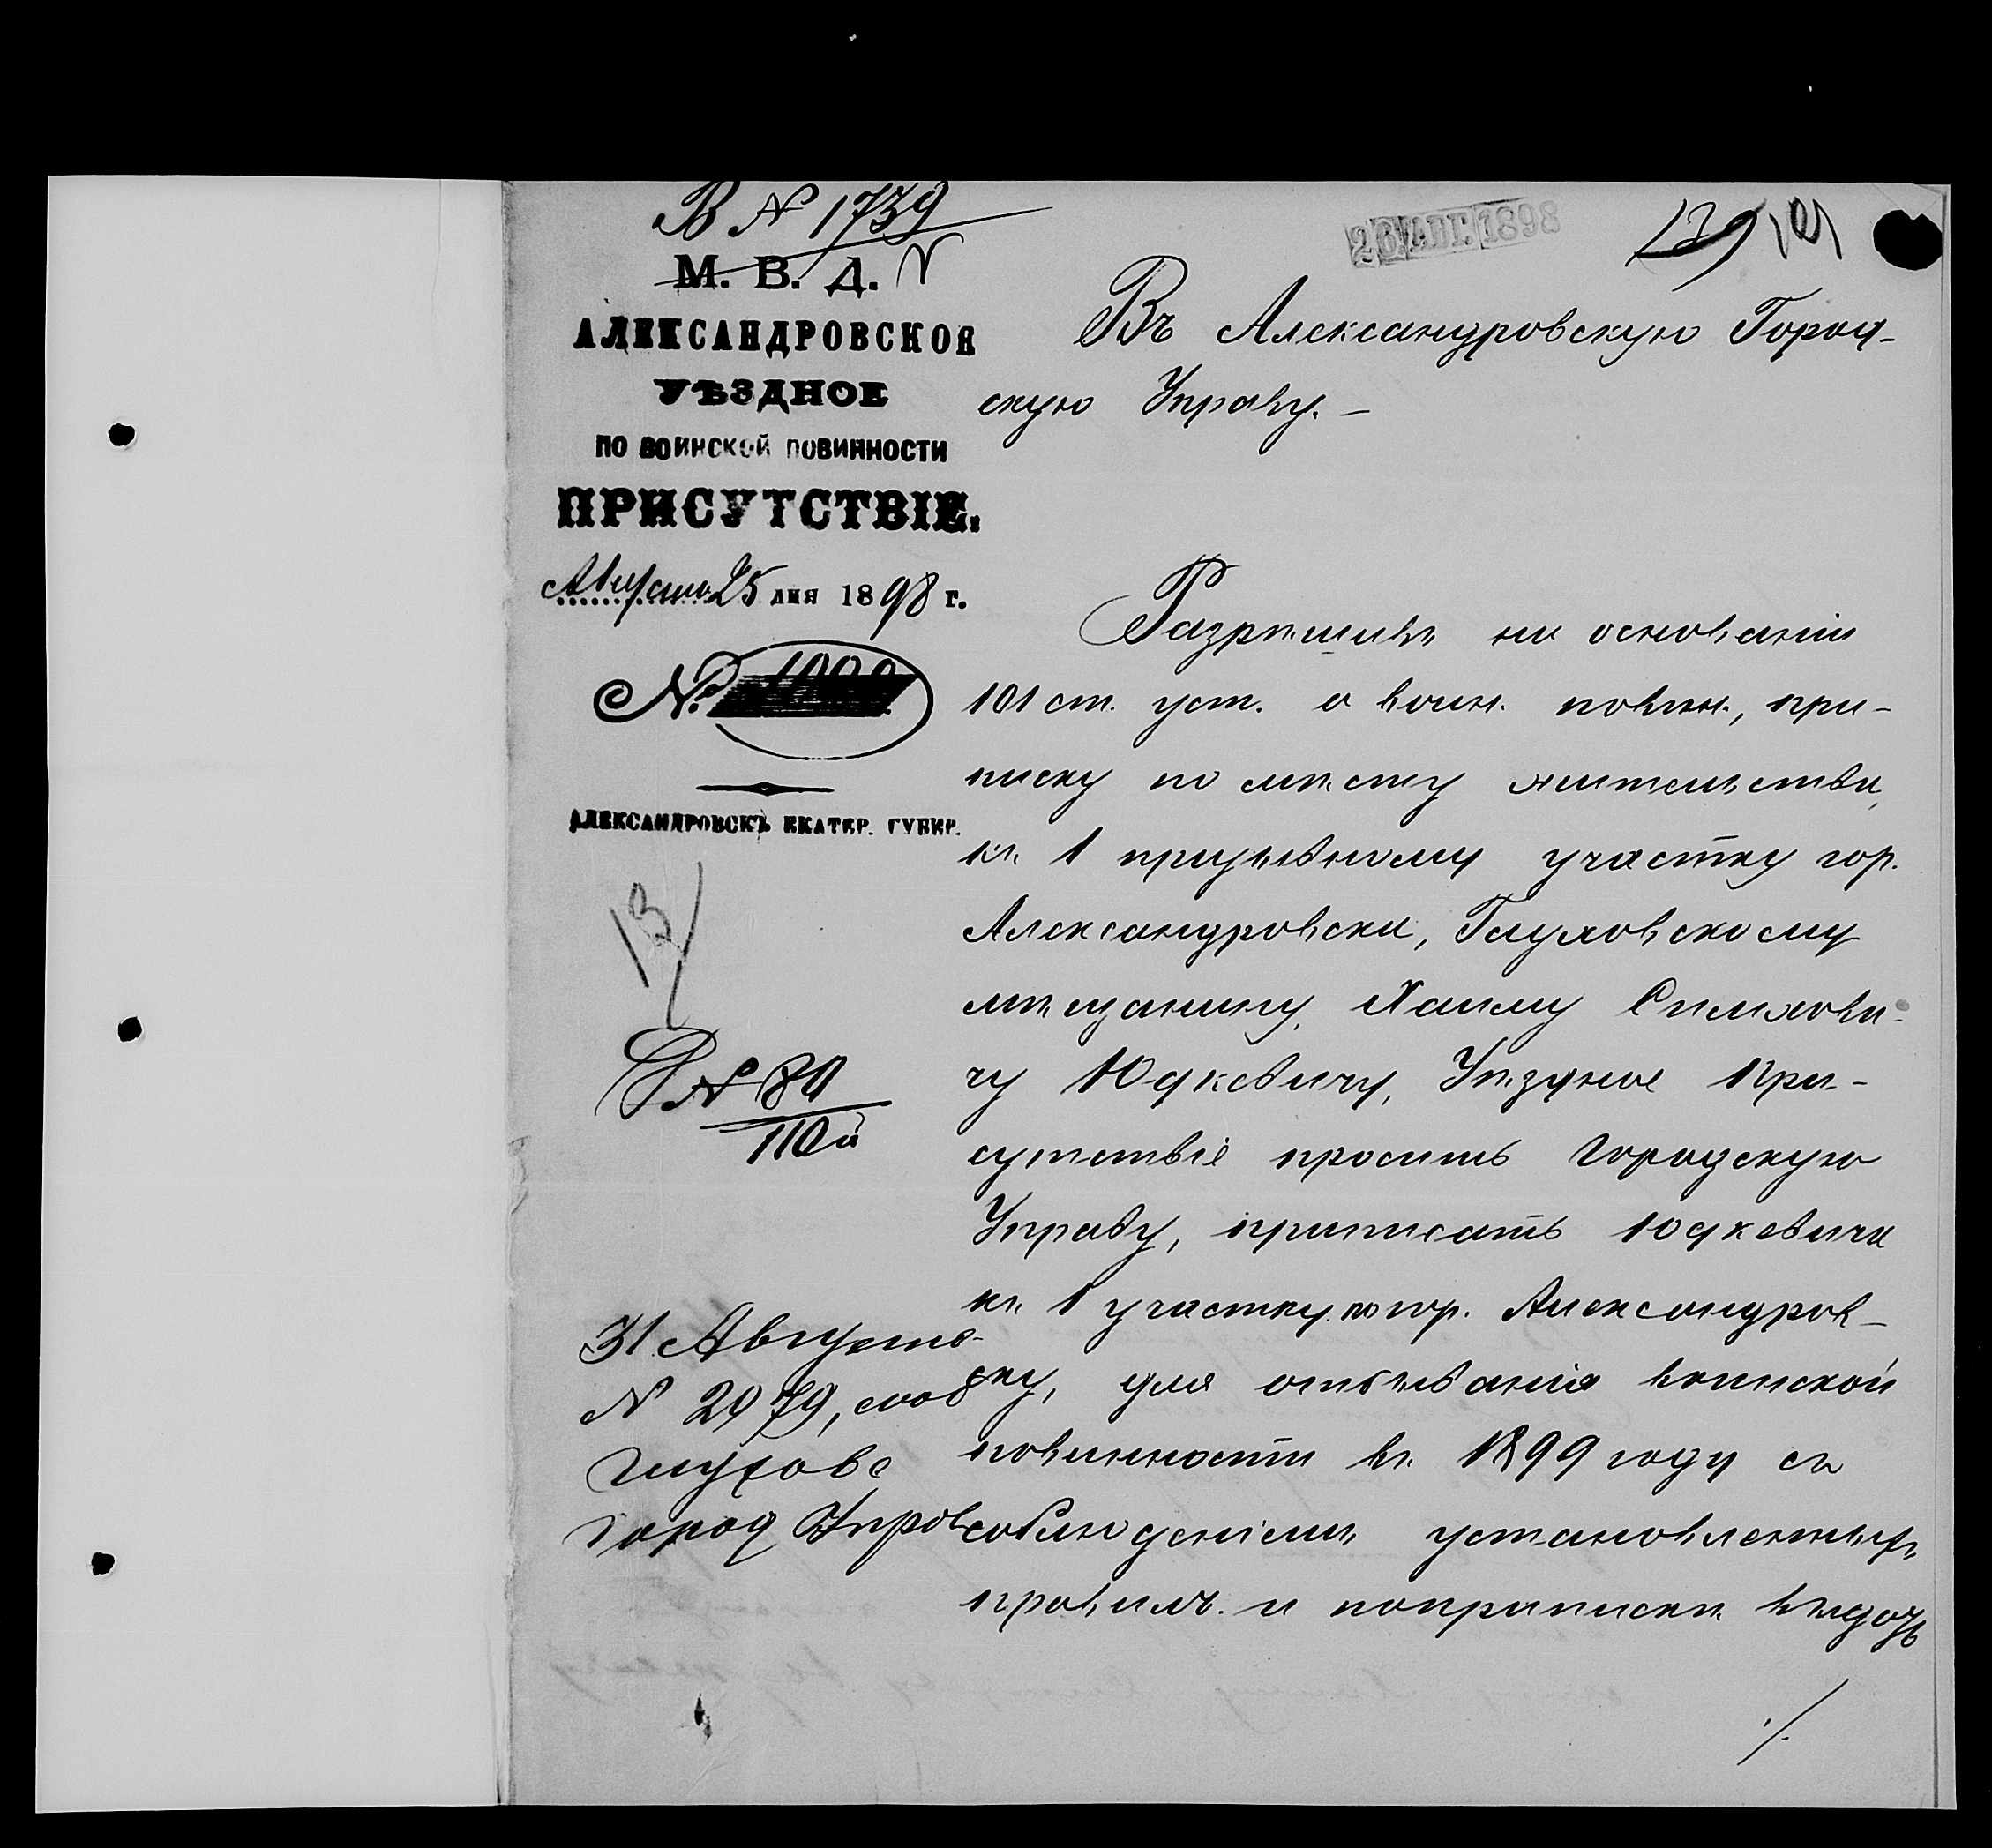 В № 1739
М. В. Д.
АЛЕКСАНДРОВСКОЕ
УѢЗДНОЕ
ПО ВОИНСКОЙ ПОВИННОСТИ
ПРИСУТСТВІЕ.
Августа 25 дня 1898 г.
№
АЛЕКСАНДРОВСКЪ ЕКАТЕР. ГУБЕР.
26 АВГ. 1898
Въ Александровскую Город-
скую Управу. –
Разрѣшивъ на основаніи
101 ст. уст. о воин. повин., при-
писку по мѣсту жительства,
къ 1 призывному участку гор.
Александровска, Глуховскому
мѣщанину, Хаиму Симхови-
чу Юдкевичу, Уѣздное При-
сутствіе проситъ Городскую
Управу, приписать Юдкевича
къ 1 участку по гор. Александров-
ску, для отбыванія воинской
повинности въ 1899 году съ
соблюденіемъ установленныхъ
правилъ и поприпискѣ выдать
./.
13
№ 80
110
31 Августа
№ 2079, сооб
Глухов
Город Управ